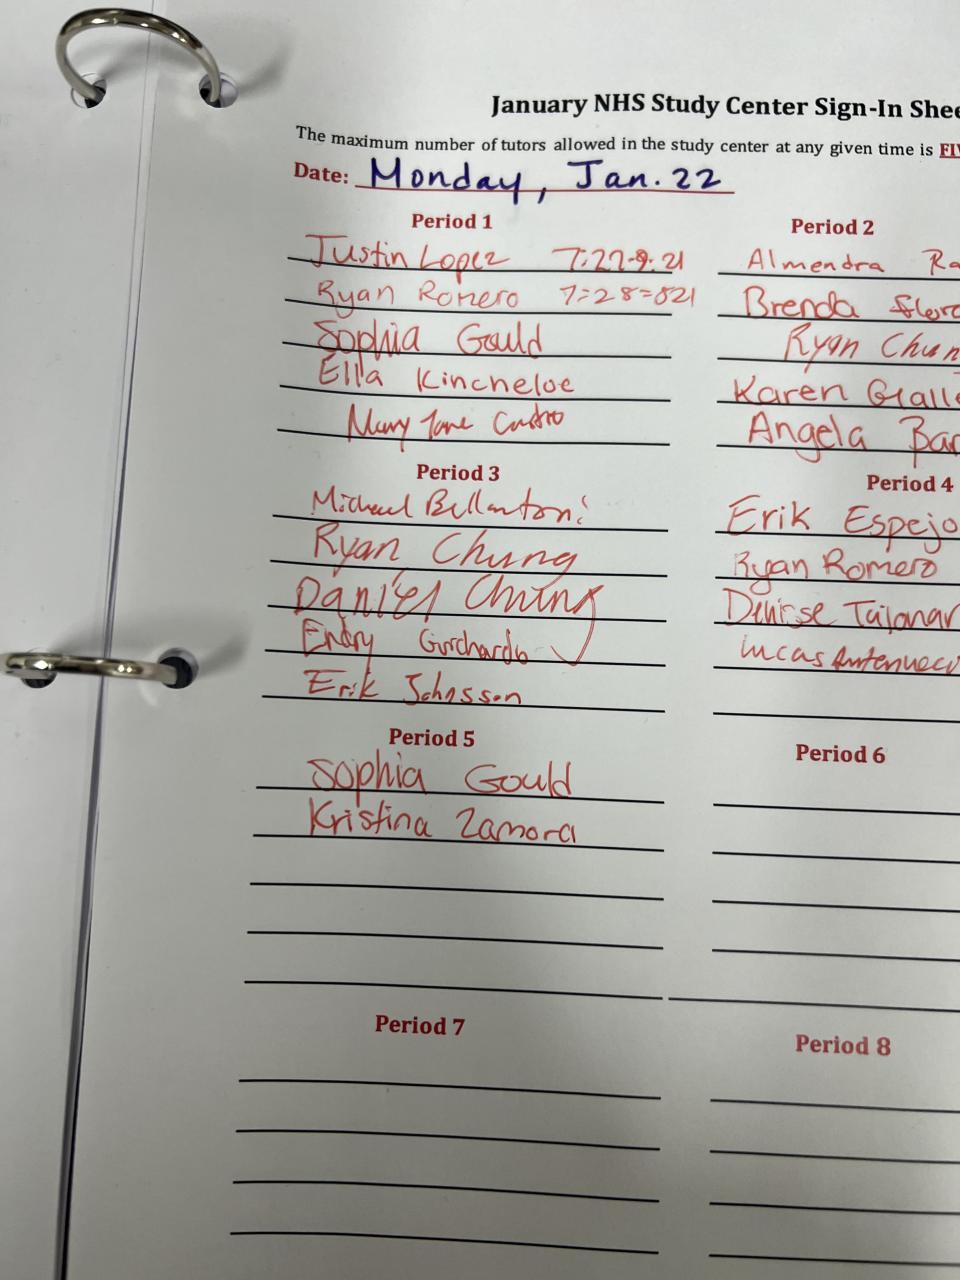 January NHS Study Center Sign-In Shee
The maximum number of tutors allowed in the study center at any given time is FIV
Date: Monday, Jan. 22
Period 1
Justin Lopez 7:27-8:21
Ryan Romero 7=28=821
Sophia Gould
Ella Kincheloe
Mary Jane Castro
Period 2
Almendra Ra
Brenda Flor
Ryan Chun
Karen Gall
Angela Bar
Period 3
Michael Bellantoni
Ryan Chung
Daniel Chung
Erik Johnsson
Period 4
Erik Espejo
Ryan Romero
Denisse
Lucas
Period 5
Sophia Gould
Kristina Zamora
Period 6
Period 7
Period 8